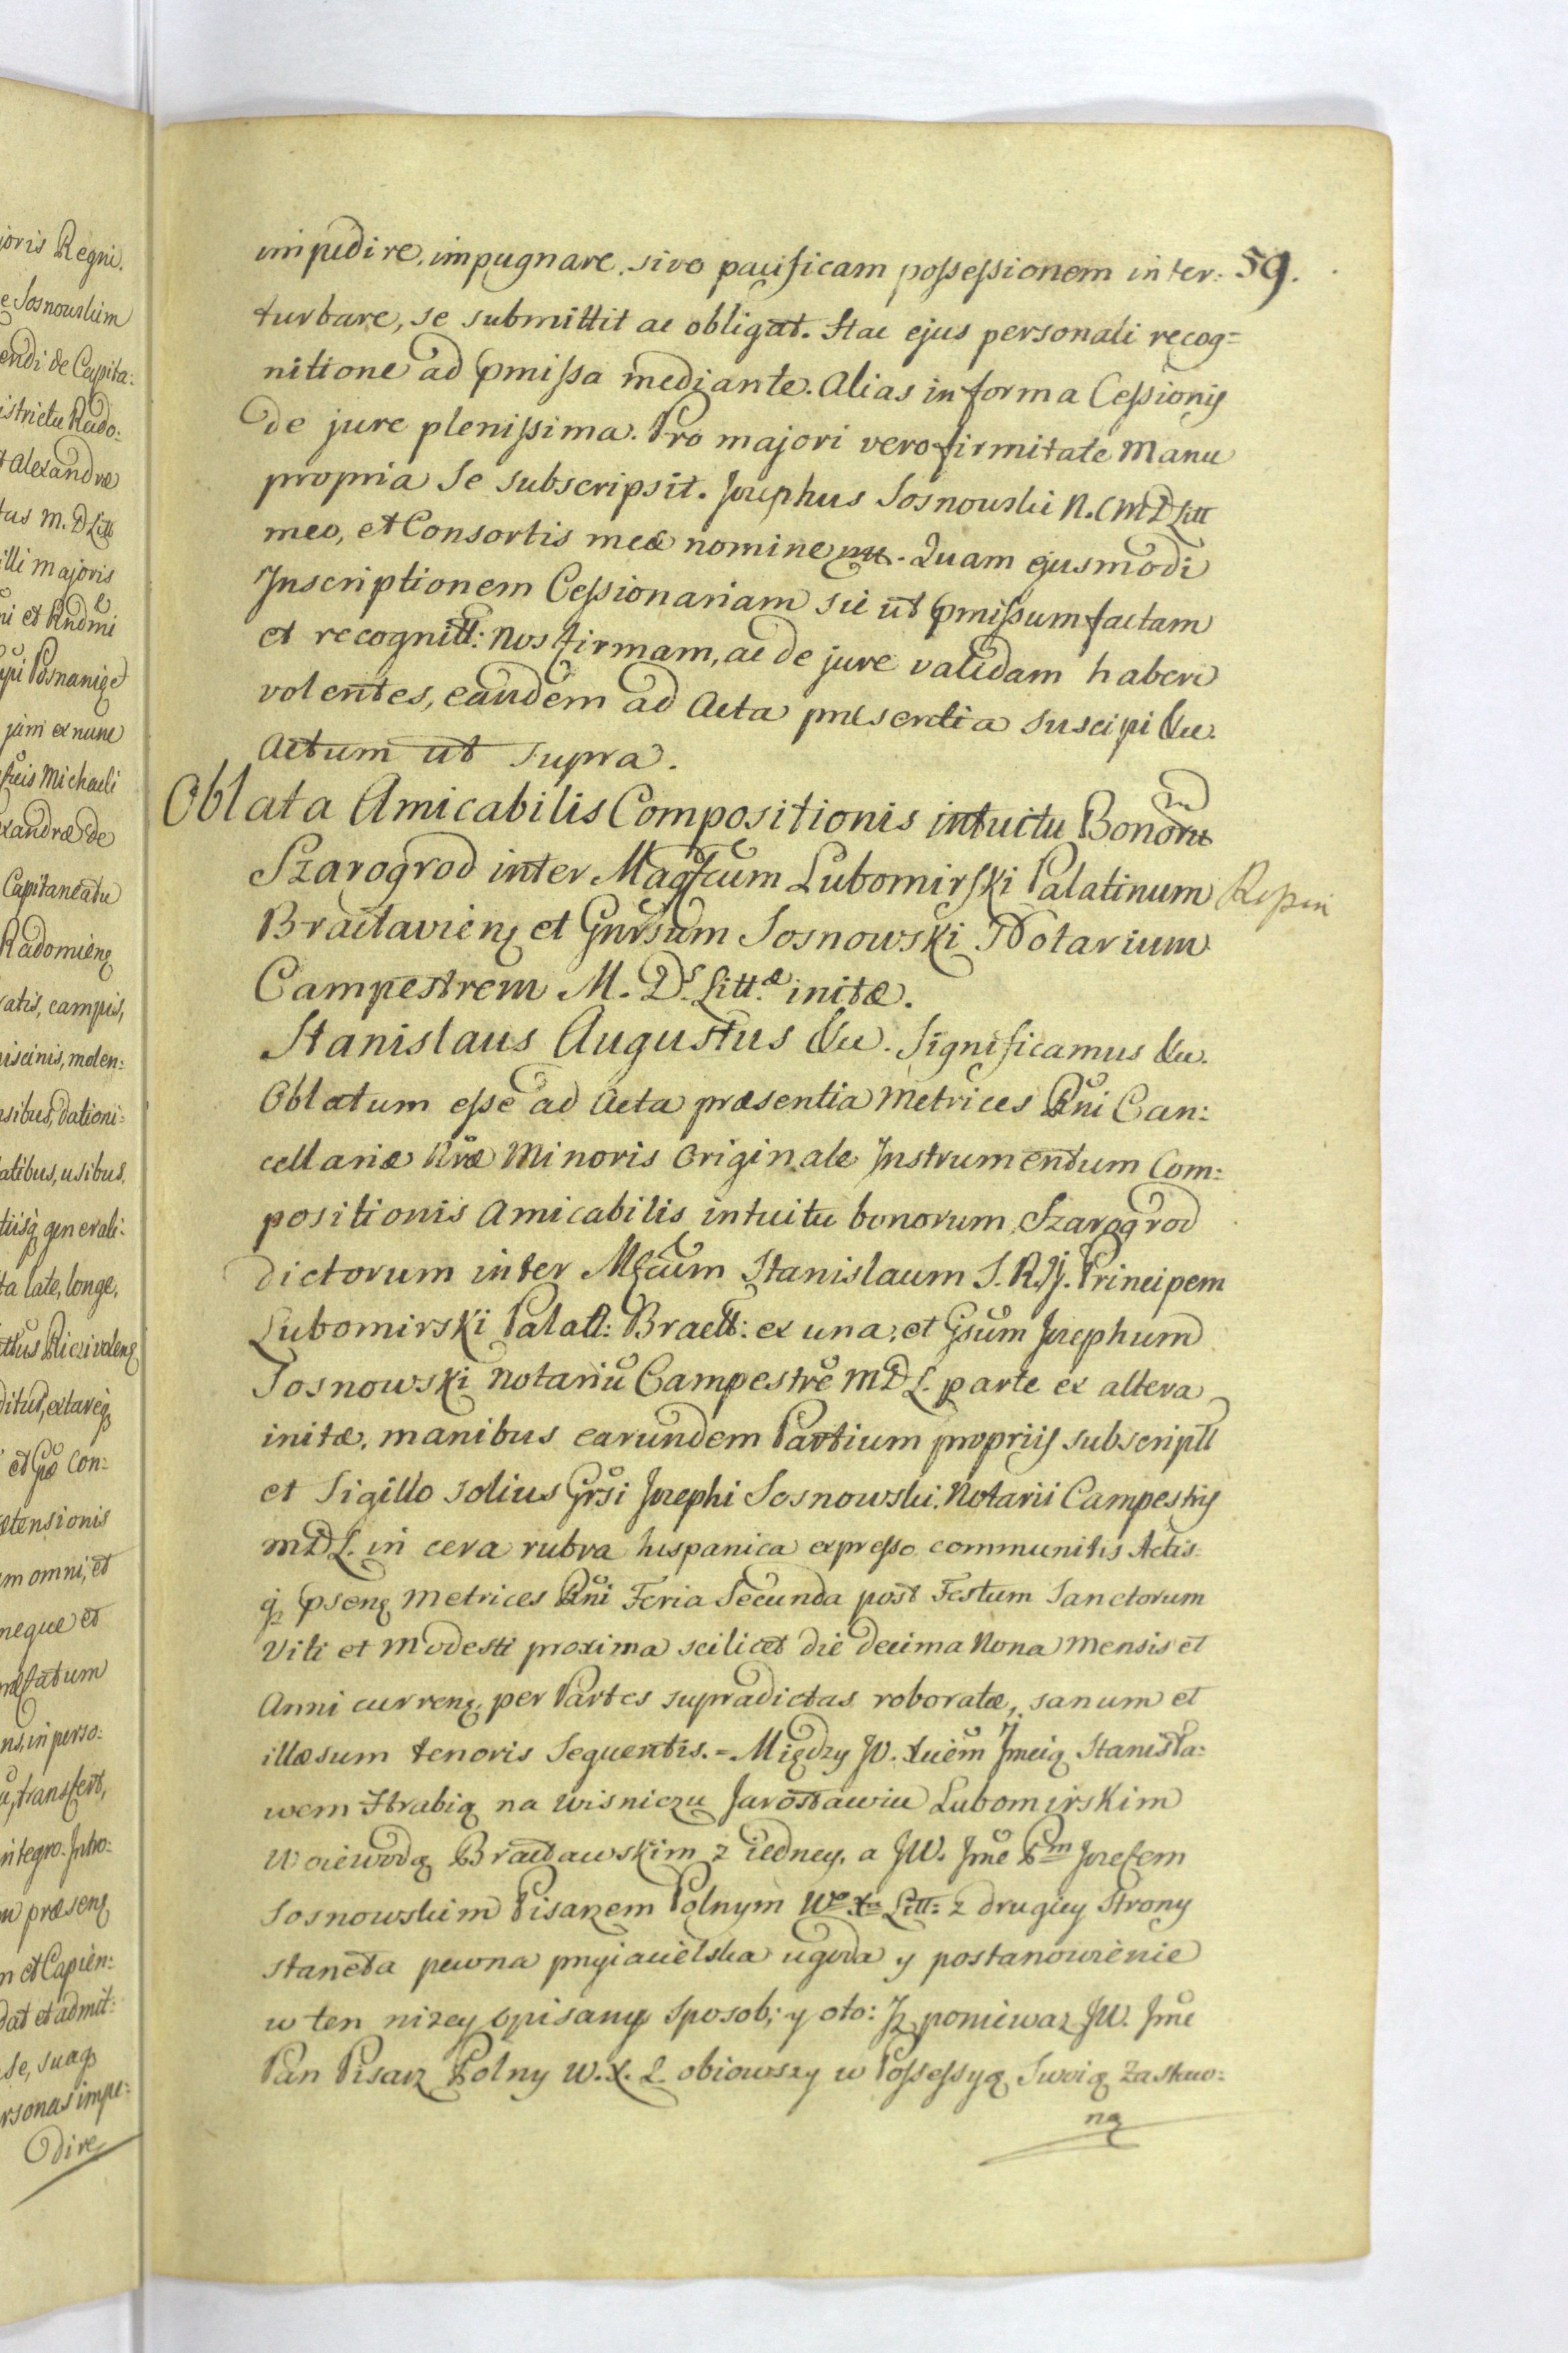 joris Regni.
e Sosnowskim
endi de Capita:
istrictu Rado:
t Alexandræ
tus M. D Litt
illi majoris
ni et Rndmi
Posnaniæ
jam ex nunc
Michaeli
exandræ de
Capitaneatu
Radomieng
ratis, campis,
piscinis, molen:
nsibus, dationi:
atibus, usibus,
tiisq generali:
ta late, longe,
ditus, extareq
et Con:
ætensionis
m omni, et
neque et
ns, in perso:
u, transfert,
integro. Intro:
m præseng
m et Capien:
dat et admit:
se, suaq
rsonas impe:
dire
impedire, impugnare, sive pacificam possessionem inter: 59.
turbare, se submittit ac obligat. Hac ejus personali recog=
nitione ad pmissa mediante. Alias in forma Cessionis
de jure plenissima. Pro majori vero firmitate Manu
propria Se subscripsit. Josephus Sosnowski N.C MD Litt
meo, et Consortis meæ nomine mp. Quam ejusmodi
Inscriptionem Cessionariam sic ut pmissum factam
et recognitt: Nos firmam, ac de jure validam haberi
volentes, eandem ad Acta præsentia suscipi &c.
Actum ut supra.
Oblata Amicabilis Compositionis intuitu Bonoru
Szarogrod inter Magfcum Lubomirski Palatinum
Braclavieng et Gnrsum Sosnowski Notarium
Campestrem M. Ds Littæ initæ.
Stanislaus Augustus &c. Significamus &c.
Oblatum esse ad Acta præsentia Metrices Rni Can:
cellariæ Nræ Minoris Originale Instrumentum Com:
positionis Amicabilis intuitu bonorum Szarogrod
dictorum inter Mfcum Stanislaum S. R. J. Principem
Lubomirski Palatt: Bractt: ex una, et Gsum Josephum
Sosnowski Notariu Campestre MDL. parte ex altera
initæ, manibus earundem Partium propriis subscriptt
et Sigillo solius Grsi Josephi Sosnowski Notarii Campestris
MDL. in cera rubra hispanica expresso communitis Actis=
q pseng Metrices Rni Feria Secunda post Festum Sanctorum
Viti et Modesti proxima scilicet die decima Nona Mensis et
Anni curreng per Partes supradictas roboratæ, sanum et
illæsum tenoris Sequentis. = Między JO. Xciem Jmcią Stanisła:
wem Hrabią na Wisniczu Jarosławiu Lubomirskim
Woiewodą Bracławskim z iedney, a JW. Jmc Pm Jozefem
Sosnowskim Pisarzem Polnym Wo Xa Litt: z drugiey Strony
staneła pewna przyiacielska ugoda y postanowienie
w ten niżey opisany sposob; y oto: Iż ponieważ JW. Jmc
Pan Pisarz Polny W. X. L. obiowszy w Possessyą Swoią Zastaw:
ną